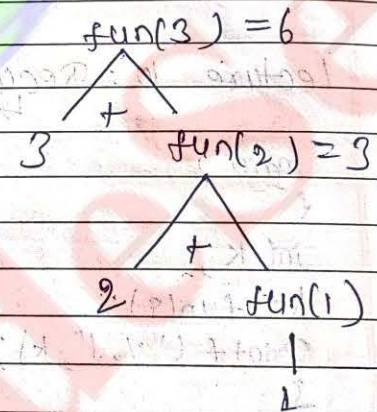 fun(3) = 6
+
3 fun(2) = 3
+
2 fun(1)
1